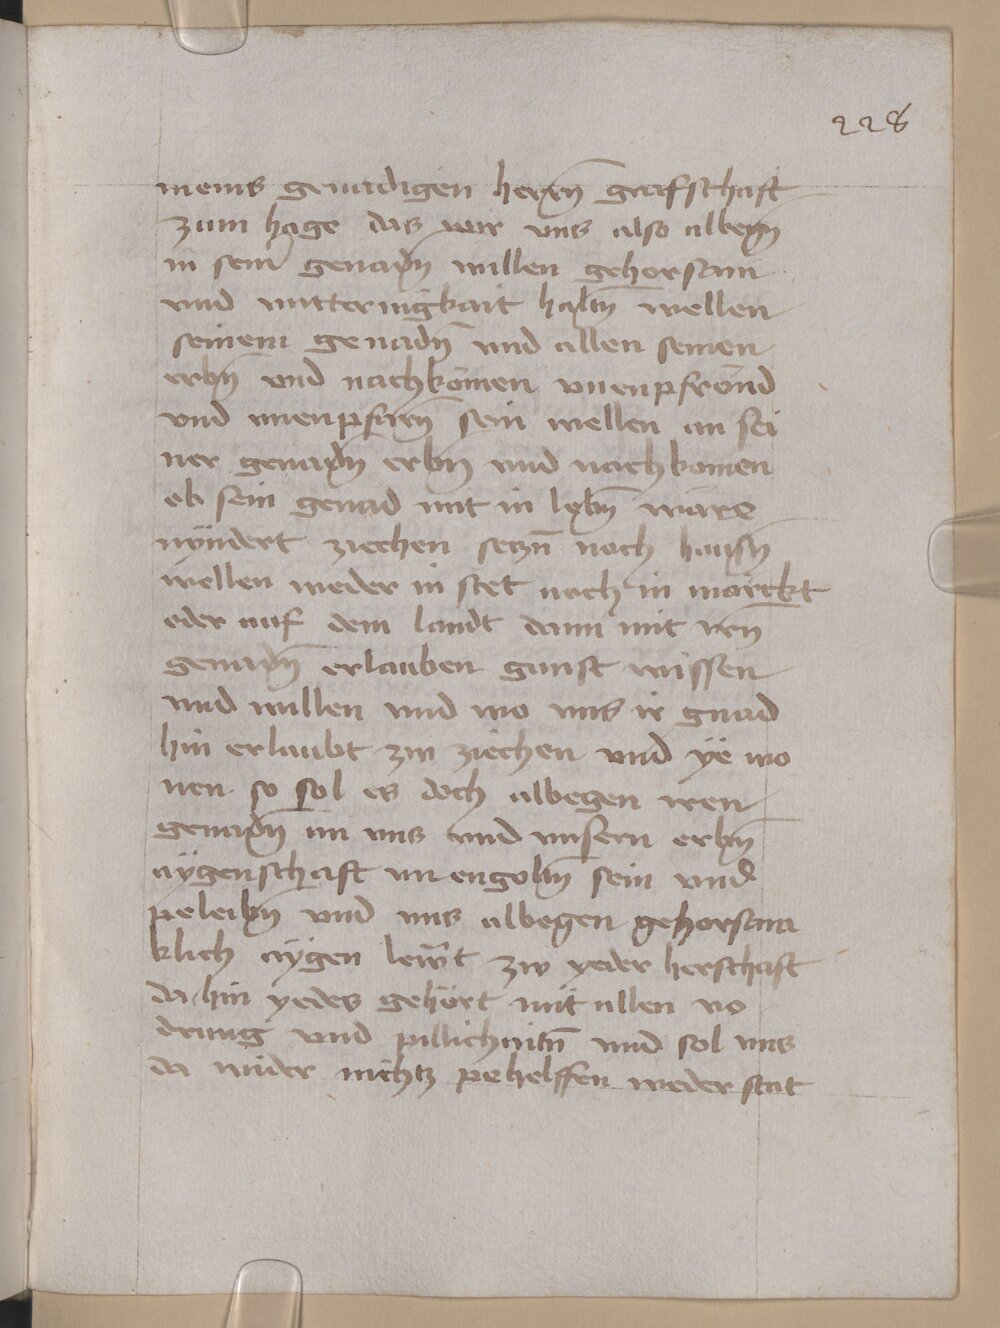 228
meins genadigen herrn̄ grafschaft
zum hage das wir uns also albegn̄
in sein genadn̄ willen gehorsam
und untternigkait haltn̄ wellen
seinem genadn̄ und allen seinen
erbn̄ und nachkömen unenpfrönd
und unenpfarn̄ sein wellen an sei
ner genadn̄ erbn̄ und nachkomen
ob sein genad nit in lebn̄ wäre
nÿndert ziechen setzn̄ noch hausn̄
wellen weder in stet noch in märckt
oder auf dem landt dann mit iren̄
genadn̄ erlauben gunst wissen
und willen und wo uns ir gnad
hin erlaubt zw ziechen und ÿe wo
nen so sol es doch albegen iren
genadn̄ an uns und unsern erbn̄
aÿgenschaft un engoltn̄ sein und
peleibn̄ und uns albegen gehorsam
klich aÿgen lewt zw yeder herschaft
da hin yedes gehört mit allen vo
drung und pillichaitn̄ und sol uns
da wider nichtz pehelffen weder stat